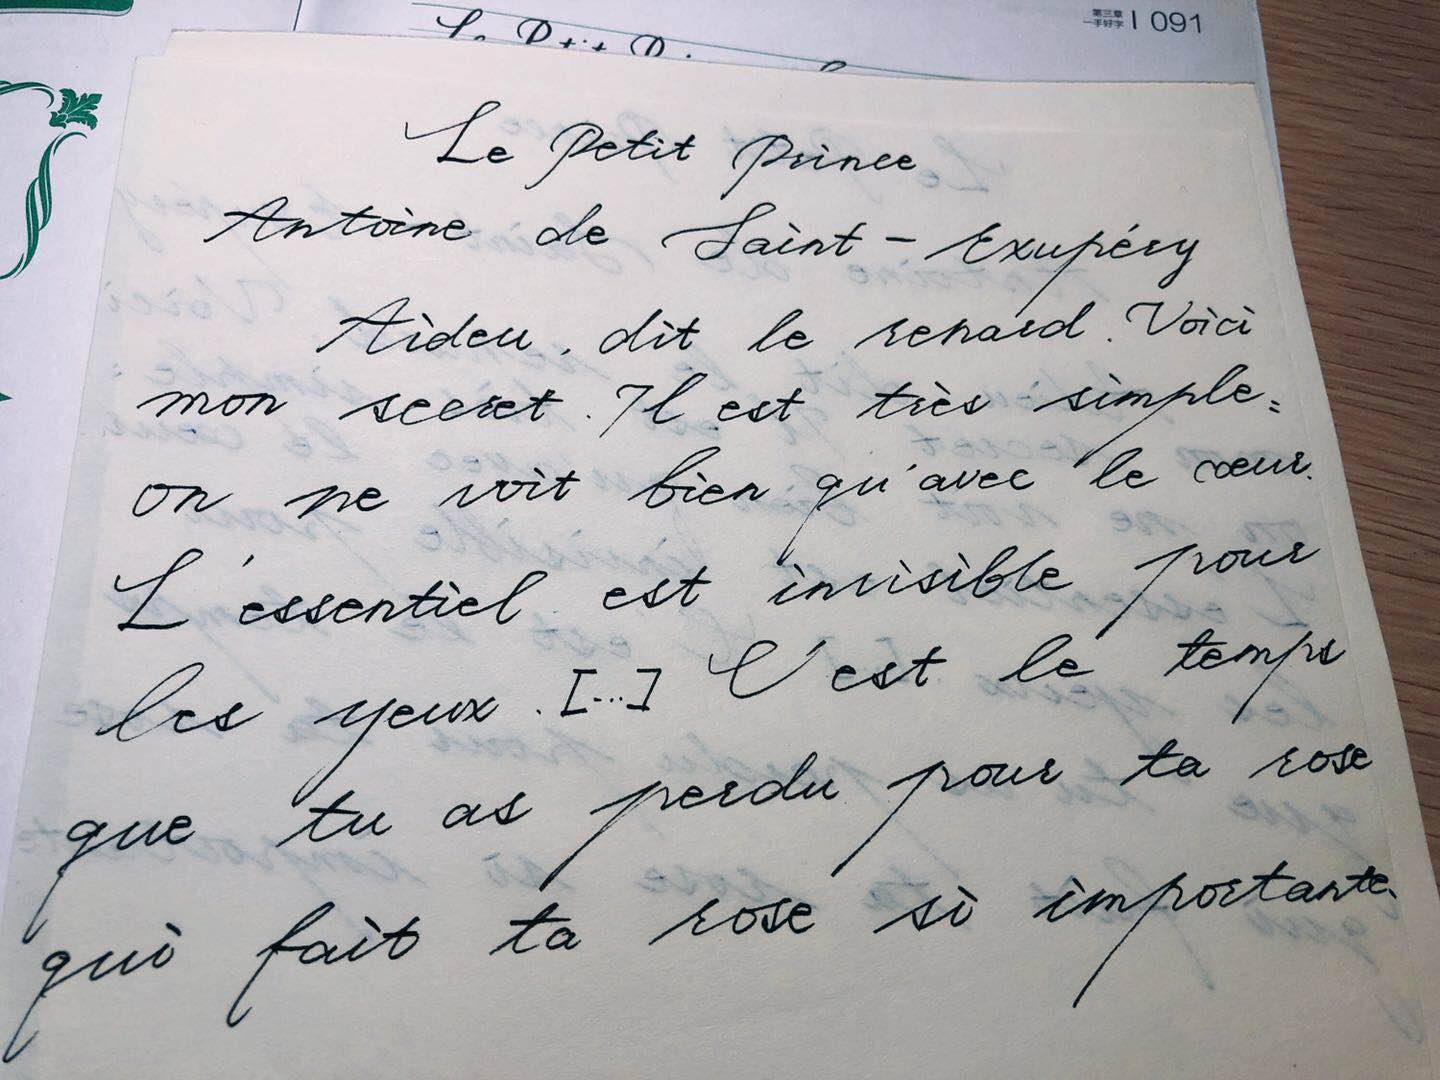 第三章
一手好字 | 091
Le Petit Prince
Le Petit Prince
Antoine de Saint-Exupéry
Aideu, dit le renard. Voici
mon secret. Il est très simple:
on ne voit bien qu'avec le cœur.
L'essentiel est invisible pour
les yeux. [...] C'est le temps
que tu as perdu pour ta rose
qui fait ta rose si importante.